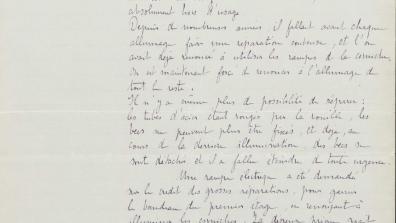 absolument hors d'usage.
Depuis de nombreuses années il fallait avant chaque
allumage faire une réparation coûteuse, et l'on
avait déjà renoncé à utiliser les rampes de la corniche.
On est maintenant forcé de renoncer à l'allumage de
tout le reste.
Il n'y a même plus de possibilité de réparer ;
les tubes d'acier étant rongés par la rouille, les
becs ne peuvent plus être fixés, et déjà, au
cours de la dernière illumination, des becs se
sont détachés et il a fallu éteindre de toute urgence.
Une rampe électrique a été demandée
sur le crédit des grosses réparations, pour garnir
le bandeau du premier étage, en renonçant à
illuminer les corniches,